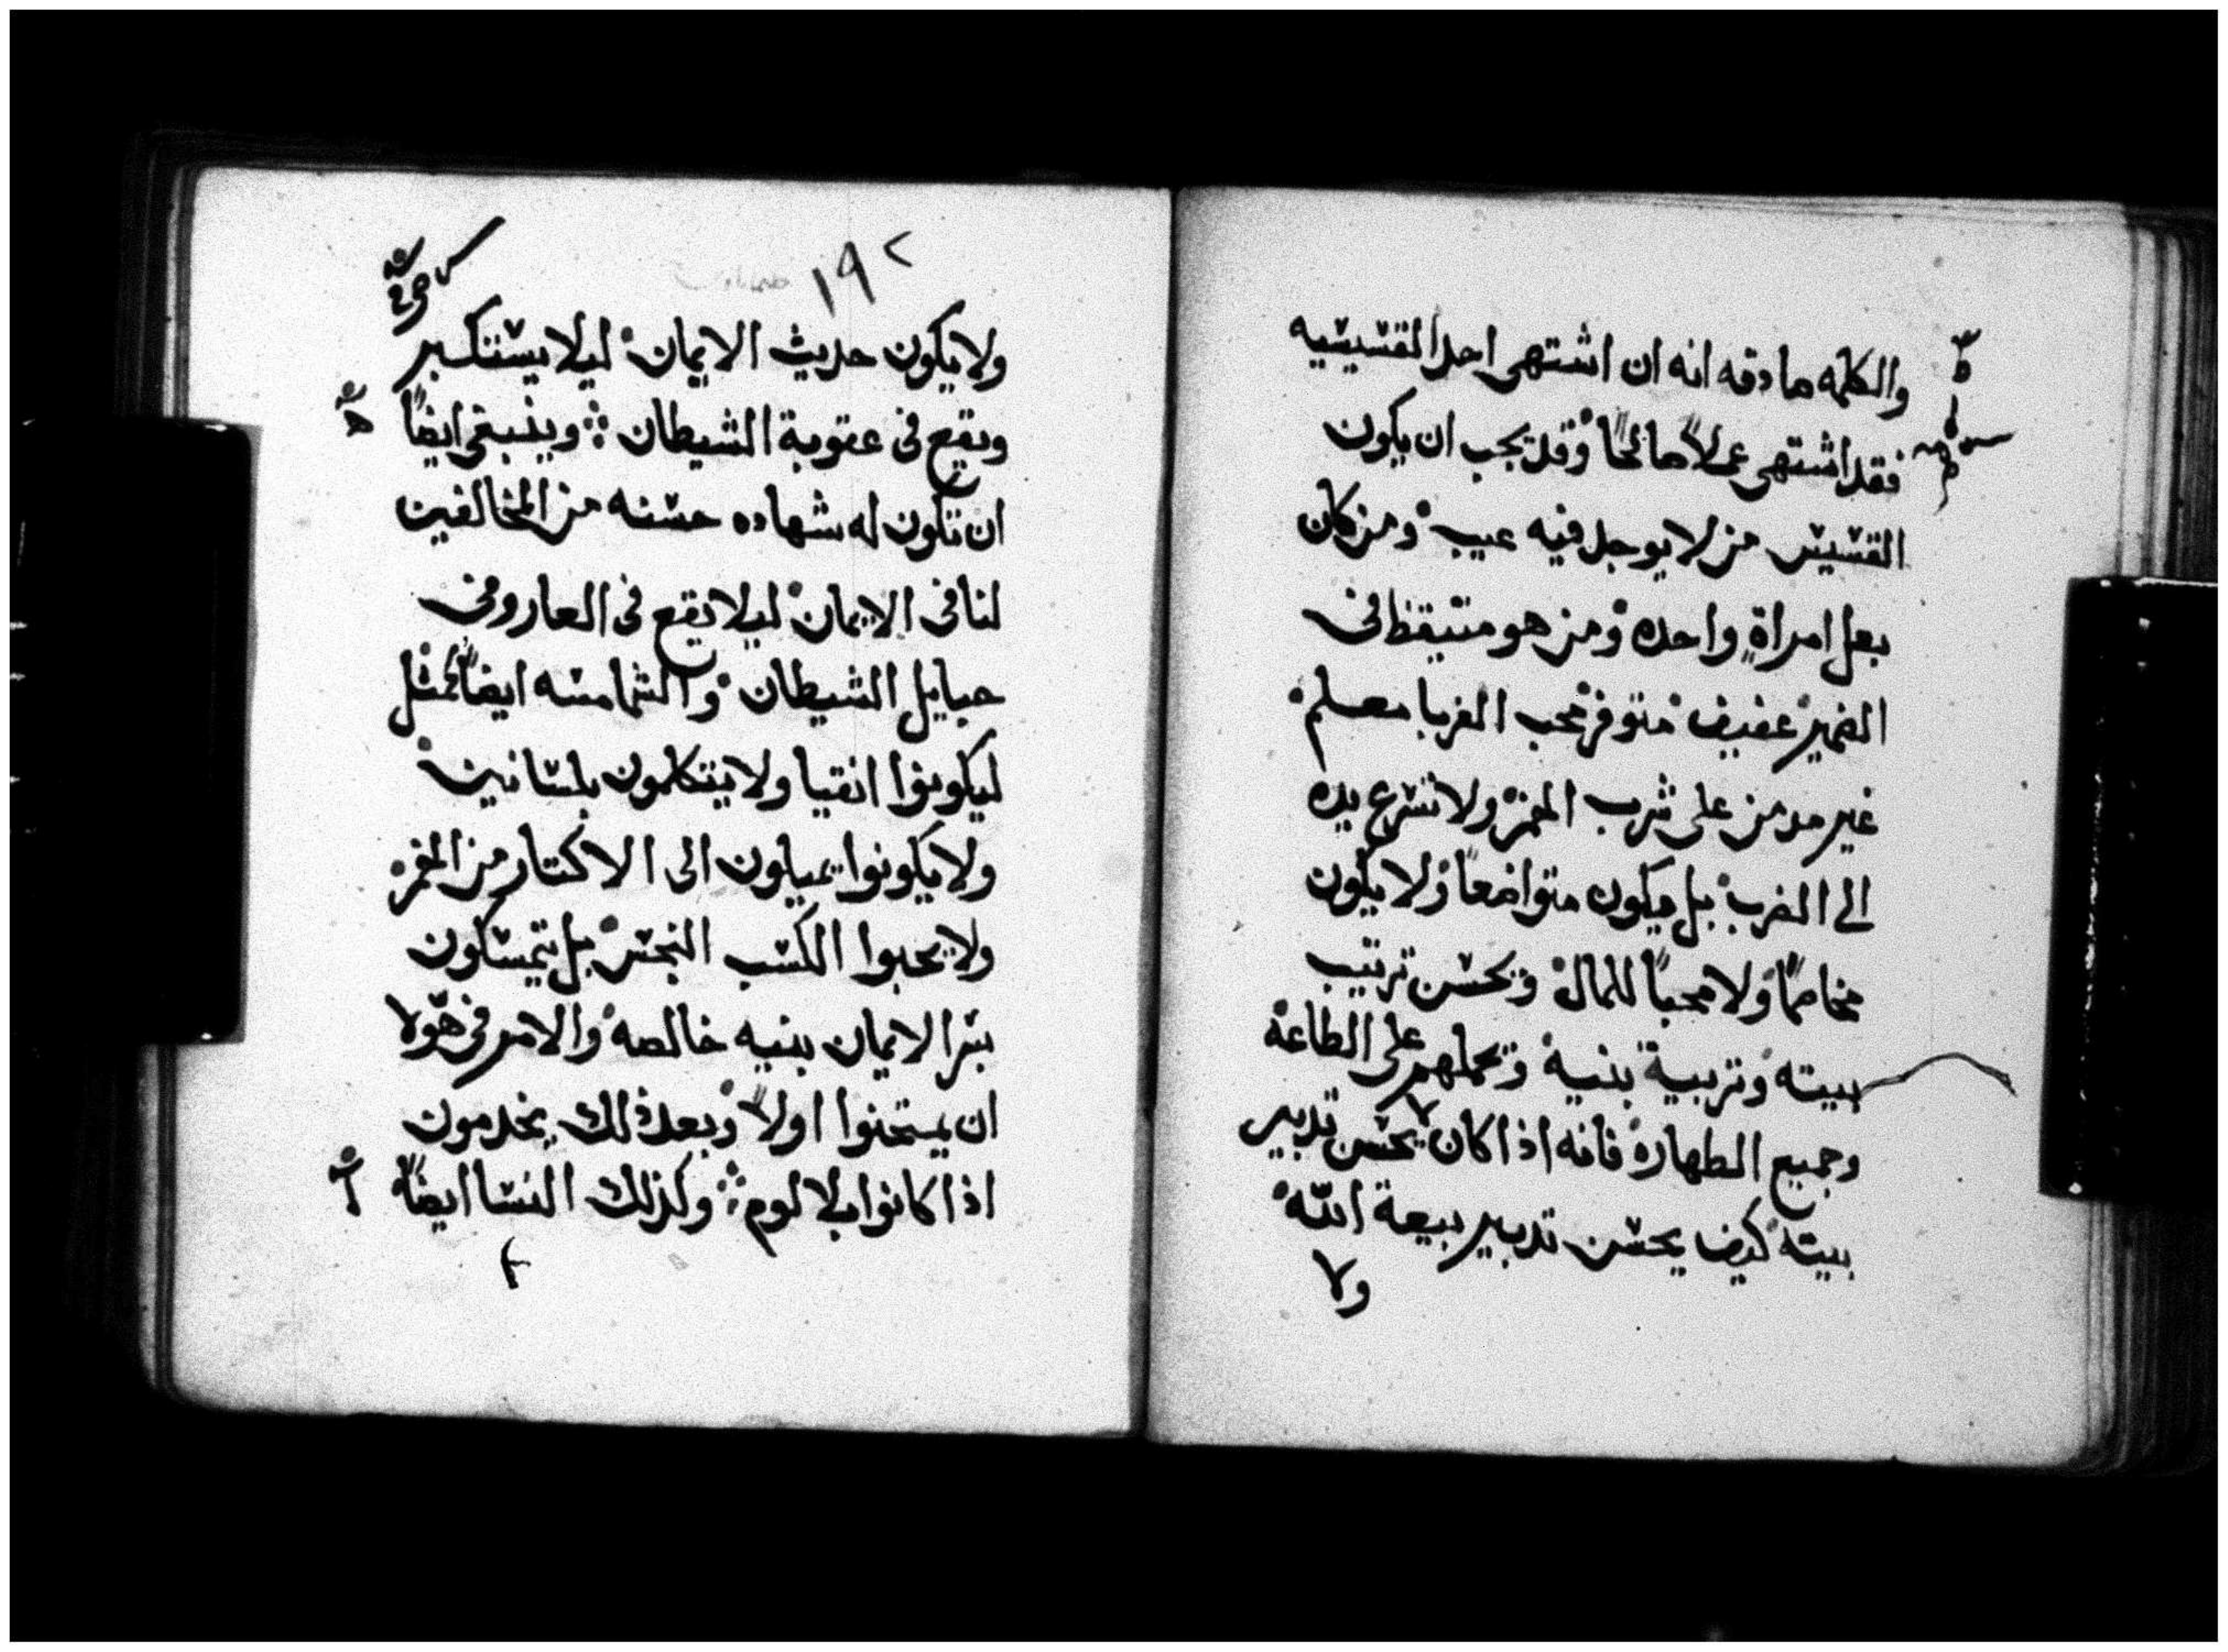 والكلمه صادقه انه ان اشتهى احد القسيسيه
فقد اشتهى عملاً صالحاً وقد يجب ان يكون
القسيس من لا يوجد فيه عيب ومن كان
بعل امراةٍ واحده ومن هو متيقظ في
الضمير عفيف متوفر محب الغربا معلم
غير مدمن على شرب الخمر ولا تسرع يده
الى الضرب بل يكون متواضعاً ولا يكون
مخاصماً ولا محباً للمال ويحسن ترتيب
بيته وتربية بنيه ويحملهم على الطاعة
وجميع الطهارة فانه اذا كان لا يحسن تدبير
بيته كيف يحسن تدبير بيعة الله
ولا
١٩٢
ولا يكون حديث الايمان ليلا يستكبر
ويقع في عقوبة الشيطان وينبغي ايضاً
ان تكون له شهاده حسنه من المخالفين
لنا في الايمان ليلا يقع في العار وفي
حبايل الشيطان والشمامسه ايضاً كمثل
ليكونوا انقيا ولا يتكلمون بلسانين
ولا يكونوا يميلون الى الاكتار من الخمر
ولا يحبوا الكسب النجس بل يتمسكون
بسر الايمان بنيه خالصه والامر في هؤلا
ان يمتحنوا اولاً وبعد ذلك يخدمون
اذا كانوا بلا لوم وكذلك النسا ايضاً